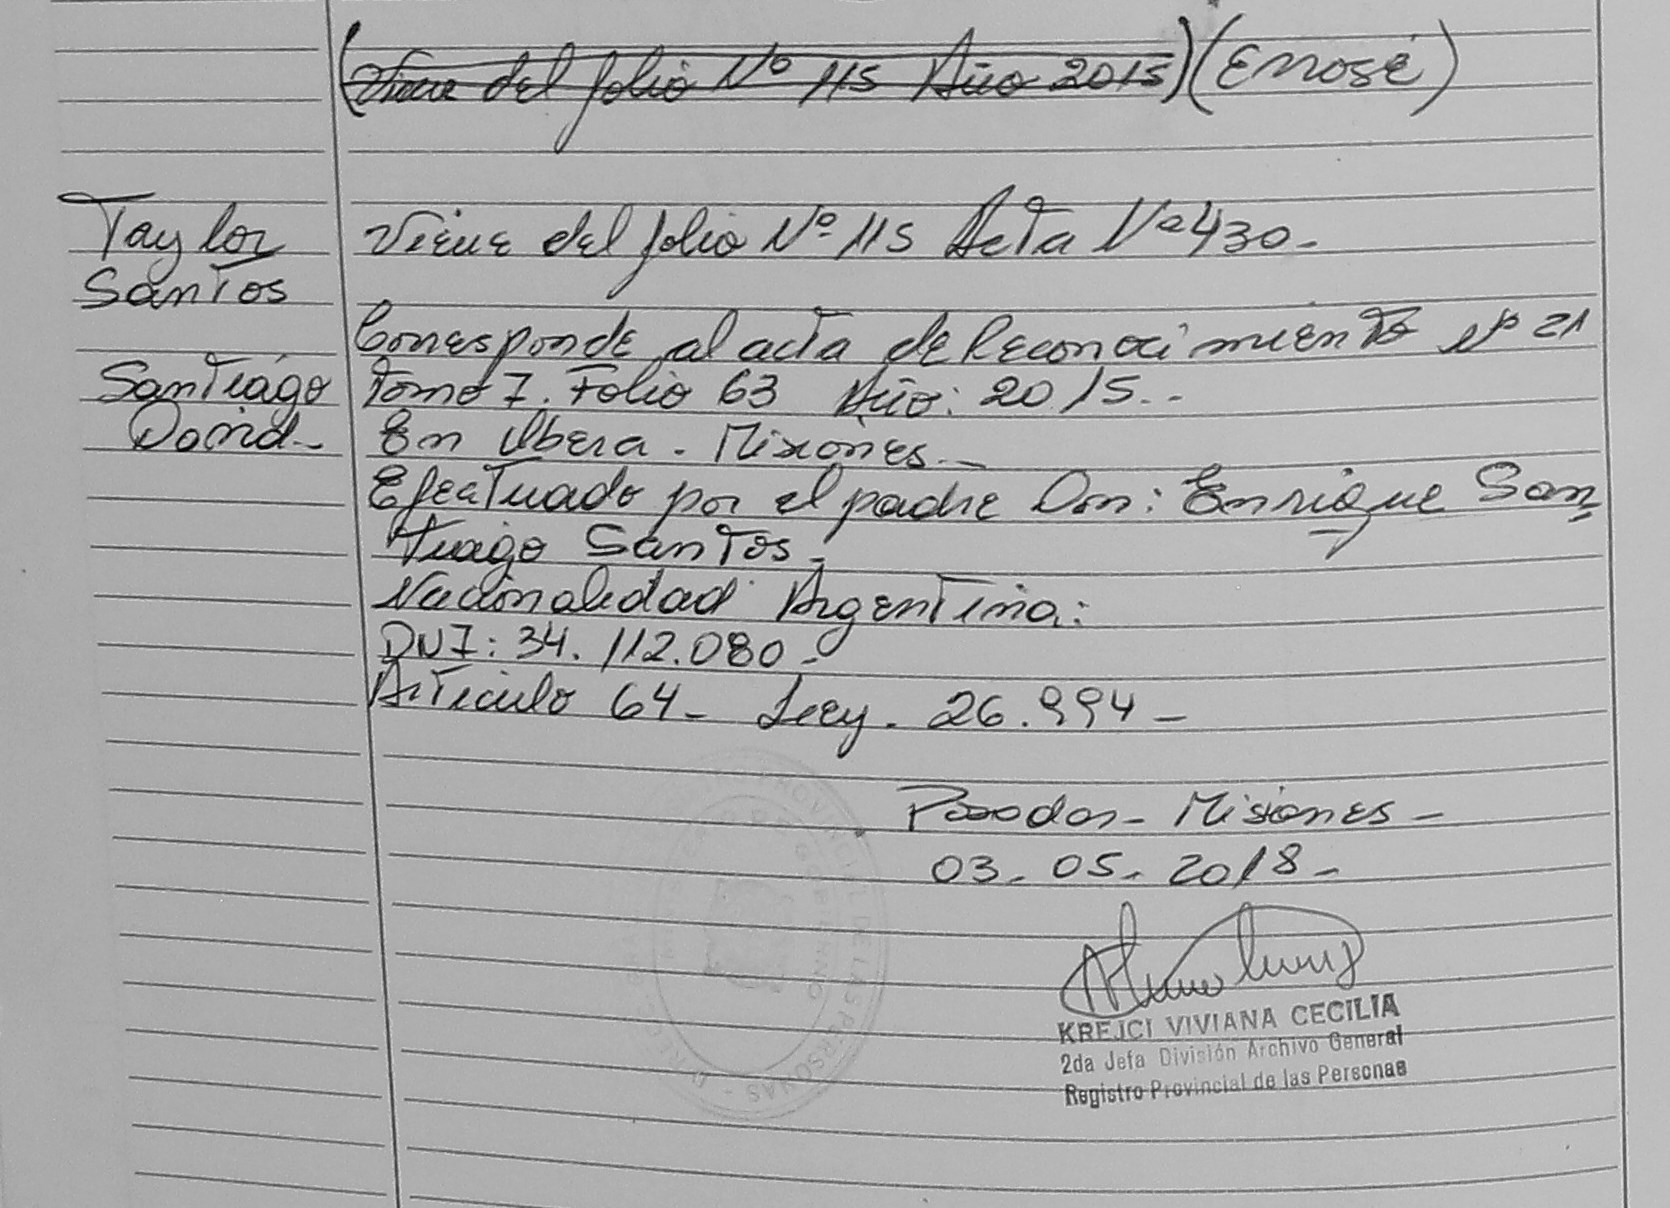 (Viene del folio Nº 115 Año 2015) (Errose)
Taylor
Santos
Santiago
David-
Viene del folio Nº 115 Acta Nº 430.-
Corresponde al acta de Reconocimiento Nº 21
Tomo I. Folio 63 Año: 2015.-
En Obera - Misiones.-
Efectuado por el padre Don: Enrique San
tiago Santos.-
Nacionalidad Argentina:
DNI: 34.112.080.-
Articulo 64- Ley. 26.994-
Posadas- Misiones-
03-05-2018-
KREJCI VIVIANA CECILIA
2da Jefa División Archivo General
Registro Provincial de las Personas
PROVINCIAL DE LAS PERSONAS -
GOBIERNO